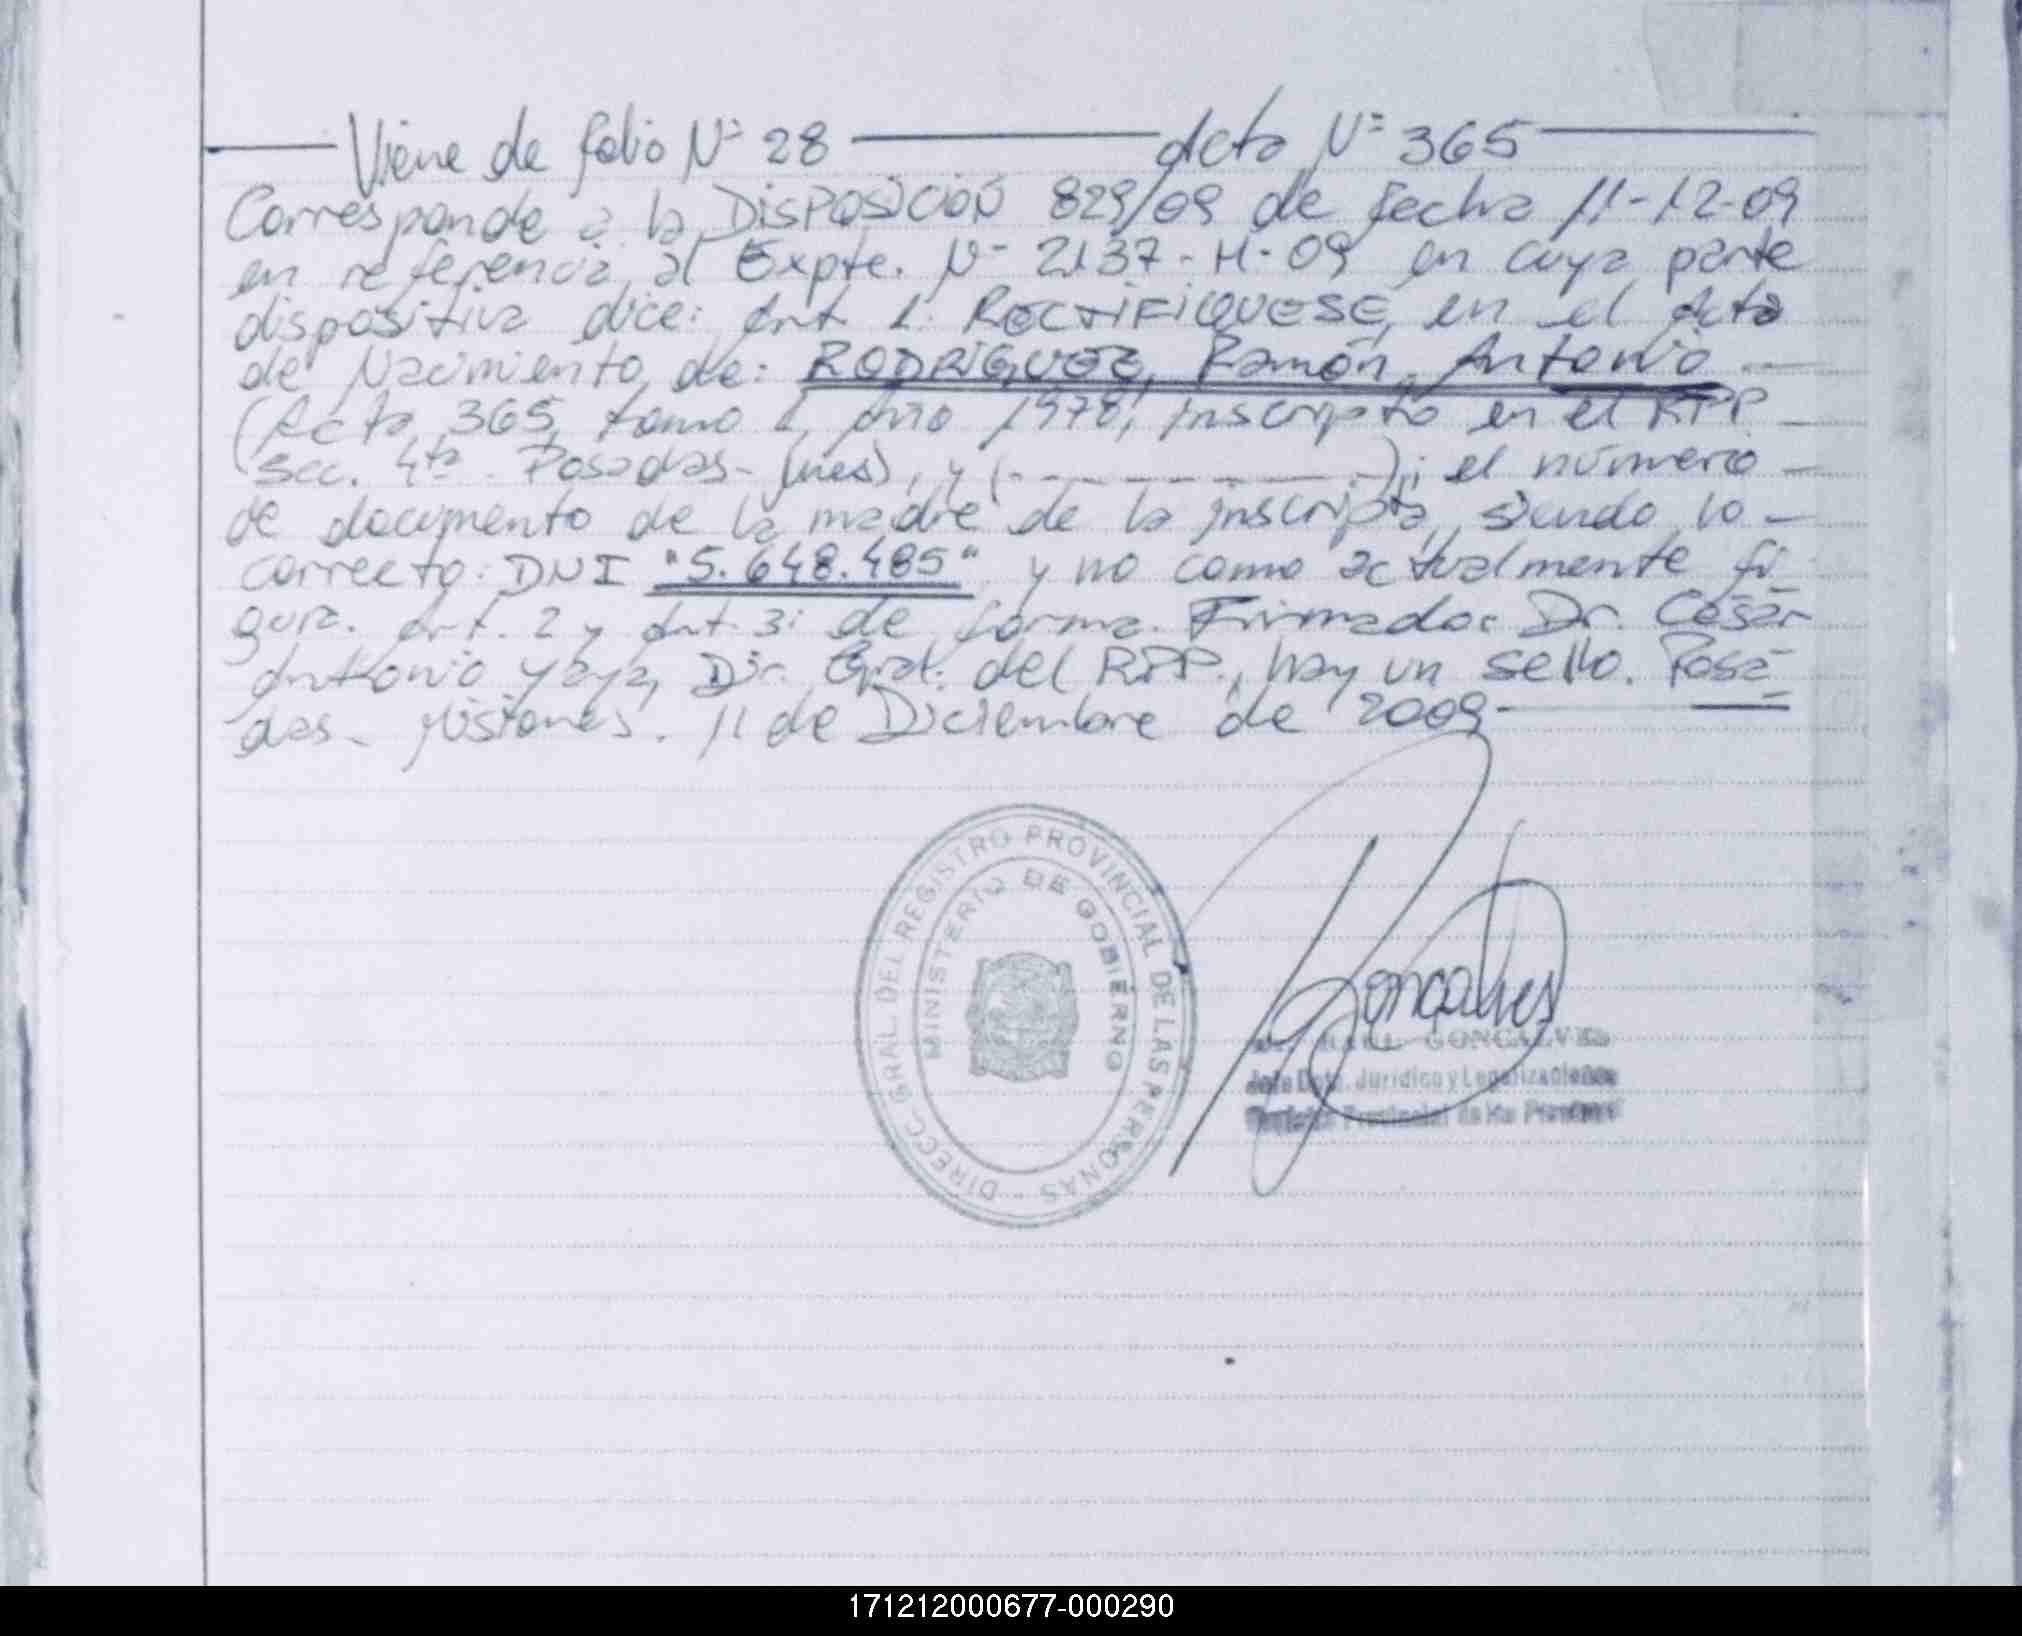 Viene de folio Nº 28 Acta Nº 365
Corresponde a la DISPOSICIÓN 829/09 de fecha 11-12-09
en referencia al Expte. Nº 2137-H-09 en cuya parte
dispositiva dice: Art 1: RECTIFIQUESE, en el Acta
de Nacimiento de: RODRIGUEZ, Ramón Antonio
(Acta 365, tomo 1, Año 1978, inscripto en el RPP
Sec. 4ta. Posadas - Mnes), y (- - - - - - - -); el número
de documento de la madre de la inscripta, siendo lo
correcto: DNI "5.648.485" y no como actualmente fi-
gura. Art. 2 y Art. 3: de forma. Firmado: Dr. César
Antonio Yaya, Dir. Gral. del RPP., hay un sello. Posa-
das - Misiones. 11 de Diciembre de 2009
DIRECC. GRAL. DEL REGISTRO PROVINCIAL DE LAS PERSONAS
MINISTERIO DE GOBIERNO
Goncalves
RAUL GONCALVES
Jefe Dpto. Jurídico y Legalizaciones
Registro Provincial de las Personas
171212000677-000290